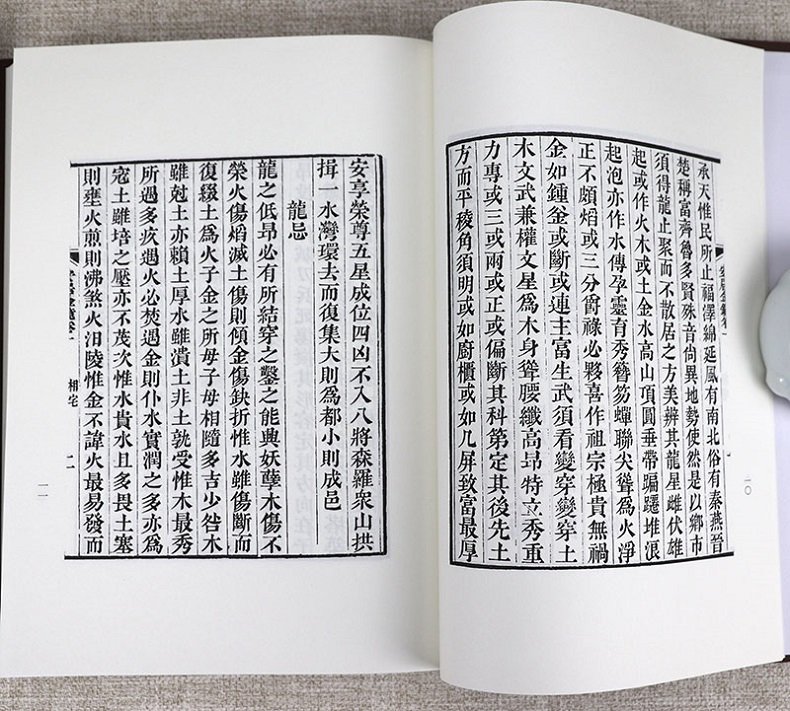 承天惟民所止福澤綿延風有南北俗有秦燕晉
楚稱富齊魯多賢殊音尚異地勢使然是以鄉市
須得龍止聚而不散居之方美辨其龍星雌伏雄
起或作火木或土金水高山頂圓垂帶蹁躚堆浪
起泡亦作水傳孕靈育秀簪笏蟬聯尖聳爲火淨
正不頗熖或三分爵祿必夥喜作祖宗極貴無禍
金如鍾釜或斷或連主富生武須看變穿變穿土
木文武兼權文星爲木身聳腰纖高昂特立秀重
力專或三或兩或正或偏斷其科第定其後先土
方而平稜角須明或如廚櫃或如几屏致富最厚
一〇
安享榮尊五星成位四凶不入八將森羅衆山拱
揖一水灣環去而復集大則爲都小則成邑
龍忌
龍之低昂必有所結穿之鑿之能典妖孽木傷不
榮火傷熖滅土傷則傾金傷缺折惟水雖傷斷而
復綴土爲火子金之所母子母相隨多吉少咎木
雖尅土亦賴土厚水雖潰土非土孰受惟木最秀
所遇多疾遇火必焚遇金則仆水實潤之多亦爲
寇土雖培之壓亦不茂次惟水貴水且多畏土塞
則壅火煎則沸煞火汨陵惟金不諱火最易發而
相宅
二
一一